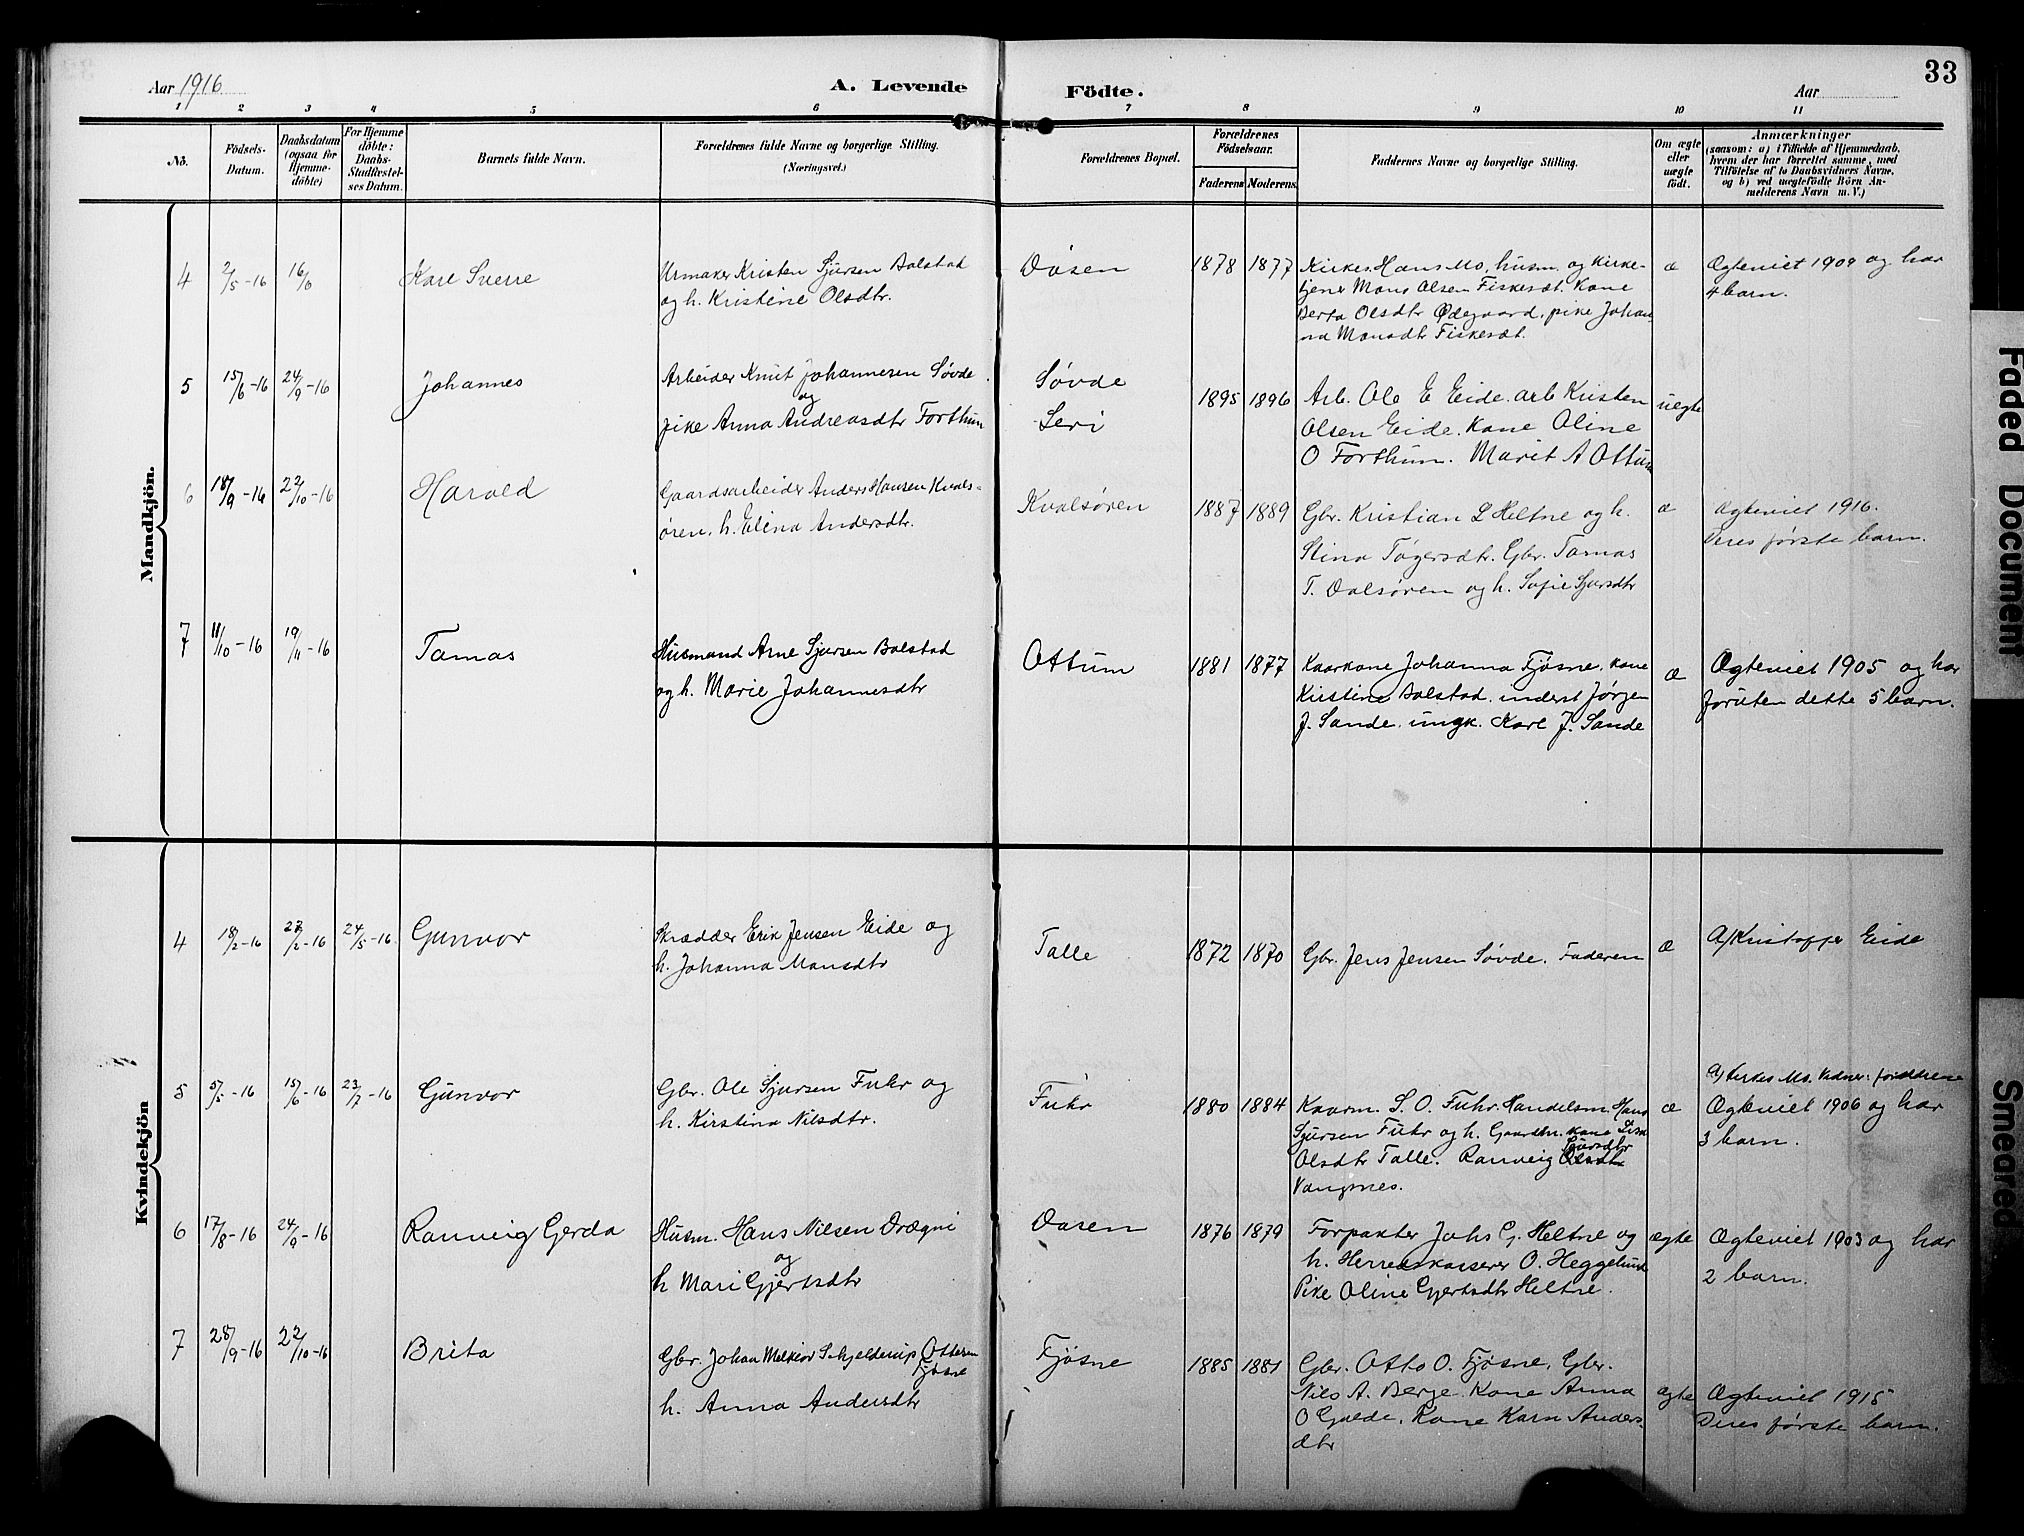 33
Aar 1916
A. Levende
Födte.
Aar
1 2 3 4 5 6 7 8 9 10 11
No.
Födsels-
Datum.
Daabsdatum
(ogsaa for
Hjemme-
döbte)
For Hjemme
döbte:
Daabs-
Stadfæstel-
ses Datum.
Barnets fulde Navn.
Forældrenes fulde Navne og borgerlige Stilling.
(Næringsvei.)
Forældrenes Bopæl.
Forældrenes
Födselsaar.
Faderens Moderens.
Faddernes Navne og borgerlige Stilling.
Om ægte
eller
uægte
födt.
Anmærkninger
(saasom: a) i Tilfælde af Hjemmedaab,
hvem der har forrettet samme, med
Tilföielse af to Daabsvidners Navne,
og b) ved uægtefödte Börn An-
melderens Navn m. V.)
Mandkjön.
4
2/5-16
16/6
Kare Sverre
Urmaker Kristen Sjursen Bolstad
og h. Kristine Olsdtr.
Døsen
1878 1877
Kirkes. Hans Mo, husm. og Kirke-
tjener Mons Olsen Fiskesæt. Kone
Berta Olsdtr Ødegaard, pike Johan
na Monsdtr Fiskesæt.
æ
Ægteviet 1909 og har
4 barn.
5
15/6-16
24/9-16
Johannes
Arbeider Knut Johannesen Søvde
og
pike Anna Andreasdtr Forthun
Søvde
Leri
1895 1896
Arb. Ole E Eide. arb Kristen
Olsen Eide. Kone Oline
O Forthun. Marit A Ottum
uegte
6
18/9-16
22/10-16
Harald
Gaardsarbeider Anders Hansen Kvals-
øren. h. Elina Andersdtr.
Kvalsøren
1887 1889
Gbr. Kristian L Heltne og h.
Stina Tøgersdtr. Gbr. Tomas
T. Dalsøren og h. Sofie Sjursdtr
æ
Ægteviet 1916.
Deres første barn.
7
11/10-16
19/11-16
Tomas
Husmand Arne Sjursen Bolstad
og h. Marie Johannesdtr
Ottum
1881 1877
Kaarkone Johanna Fjøsne, kone
Kristine Bolstad, inderst Jørgen
J. Sande, ungk. Karl J. Sande
æ
Ægteviet 1905 og har
foruten dette 5 barn.
Kvindekjön
4
18/2-16
27/2-16
24/5-16
Gunvor
Skrædder Erik Jensen Eide og
h. Johanna Monsdtr
Talle
1872 1870
Gbr. Jens Jensen Søvde. Faderen
æ
A/ Kristoffer Eide
5
5/5-16
15/6-16
23/7-16
Gunvor
Gbr. Ole Sjursen Fuhr og
h. Kirstina Nilsdtr.
Fuhr
1880 1884
Kaarm. S. O. Fuhr. Handelsm. Hans
Sjursen Fuhr og h. Gaardbr. kone
Olsdtr Talle. Ranveig Sjursdtr
Vangsnes.
æ
a/ kirkes Mo. Vidner: forældrene
Ægteviet 1906 og har
3 barn.
6
17/8-16
24/9-16
Ranveig Gerda
Husm. Hans Nilsen Drægni
og
h Mari Gjertsdtr
Døsen
1876 1879
Forpakter Johs G. Heltne og
h. Herredskasserer O. Heggelund
Pike Oline Gjertsdtr Heltne.
ægte
Ægteviet 1903 og har
2 barn.
7
28/9-16
22/10-16
Brita
Gbr. Johan Melkior Schjelderup Ottesen
Fjøsne
h. Anna Andersdtr
Fjøsne
1885 1881
Gbr. Otto O. Fjøsne, Gbr.
Nils A. Berge. Kone Anna
O Galde, Kone Karn Anders-
dtr
ægte
Ægteviet 1915
Deres første barn.
Faded Document
Smeared